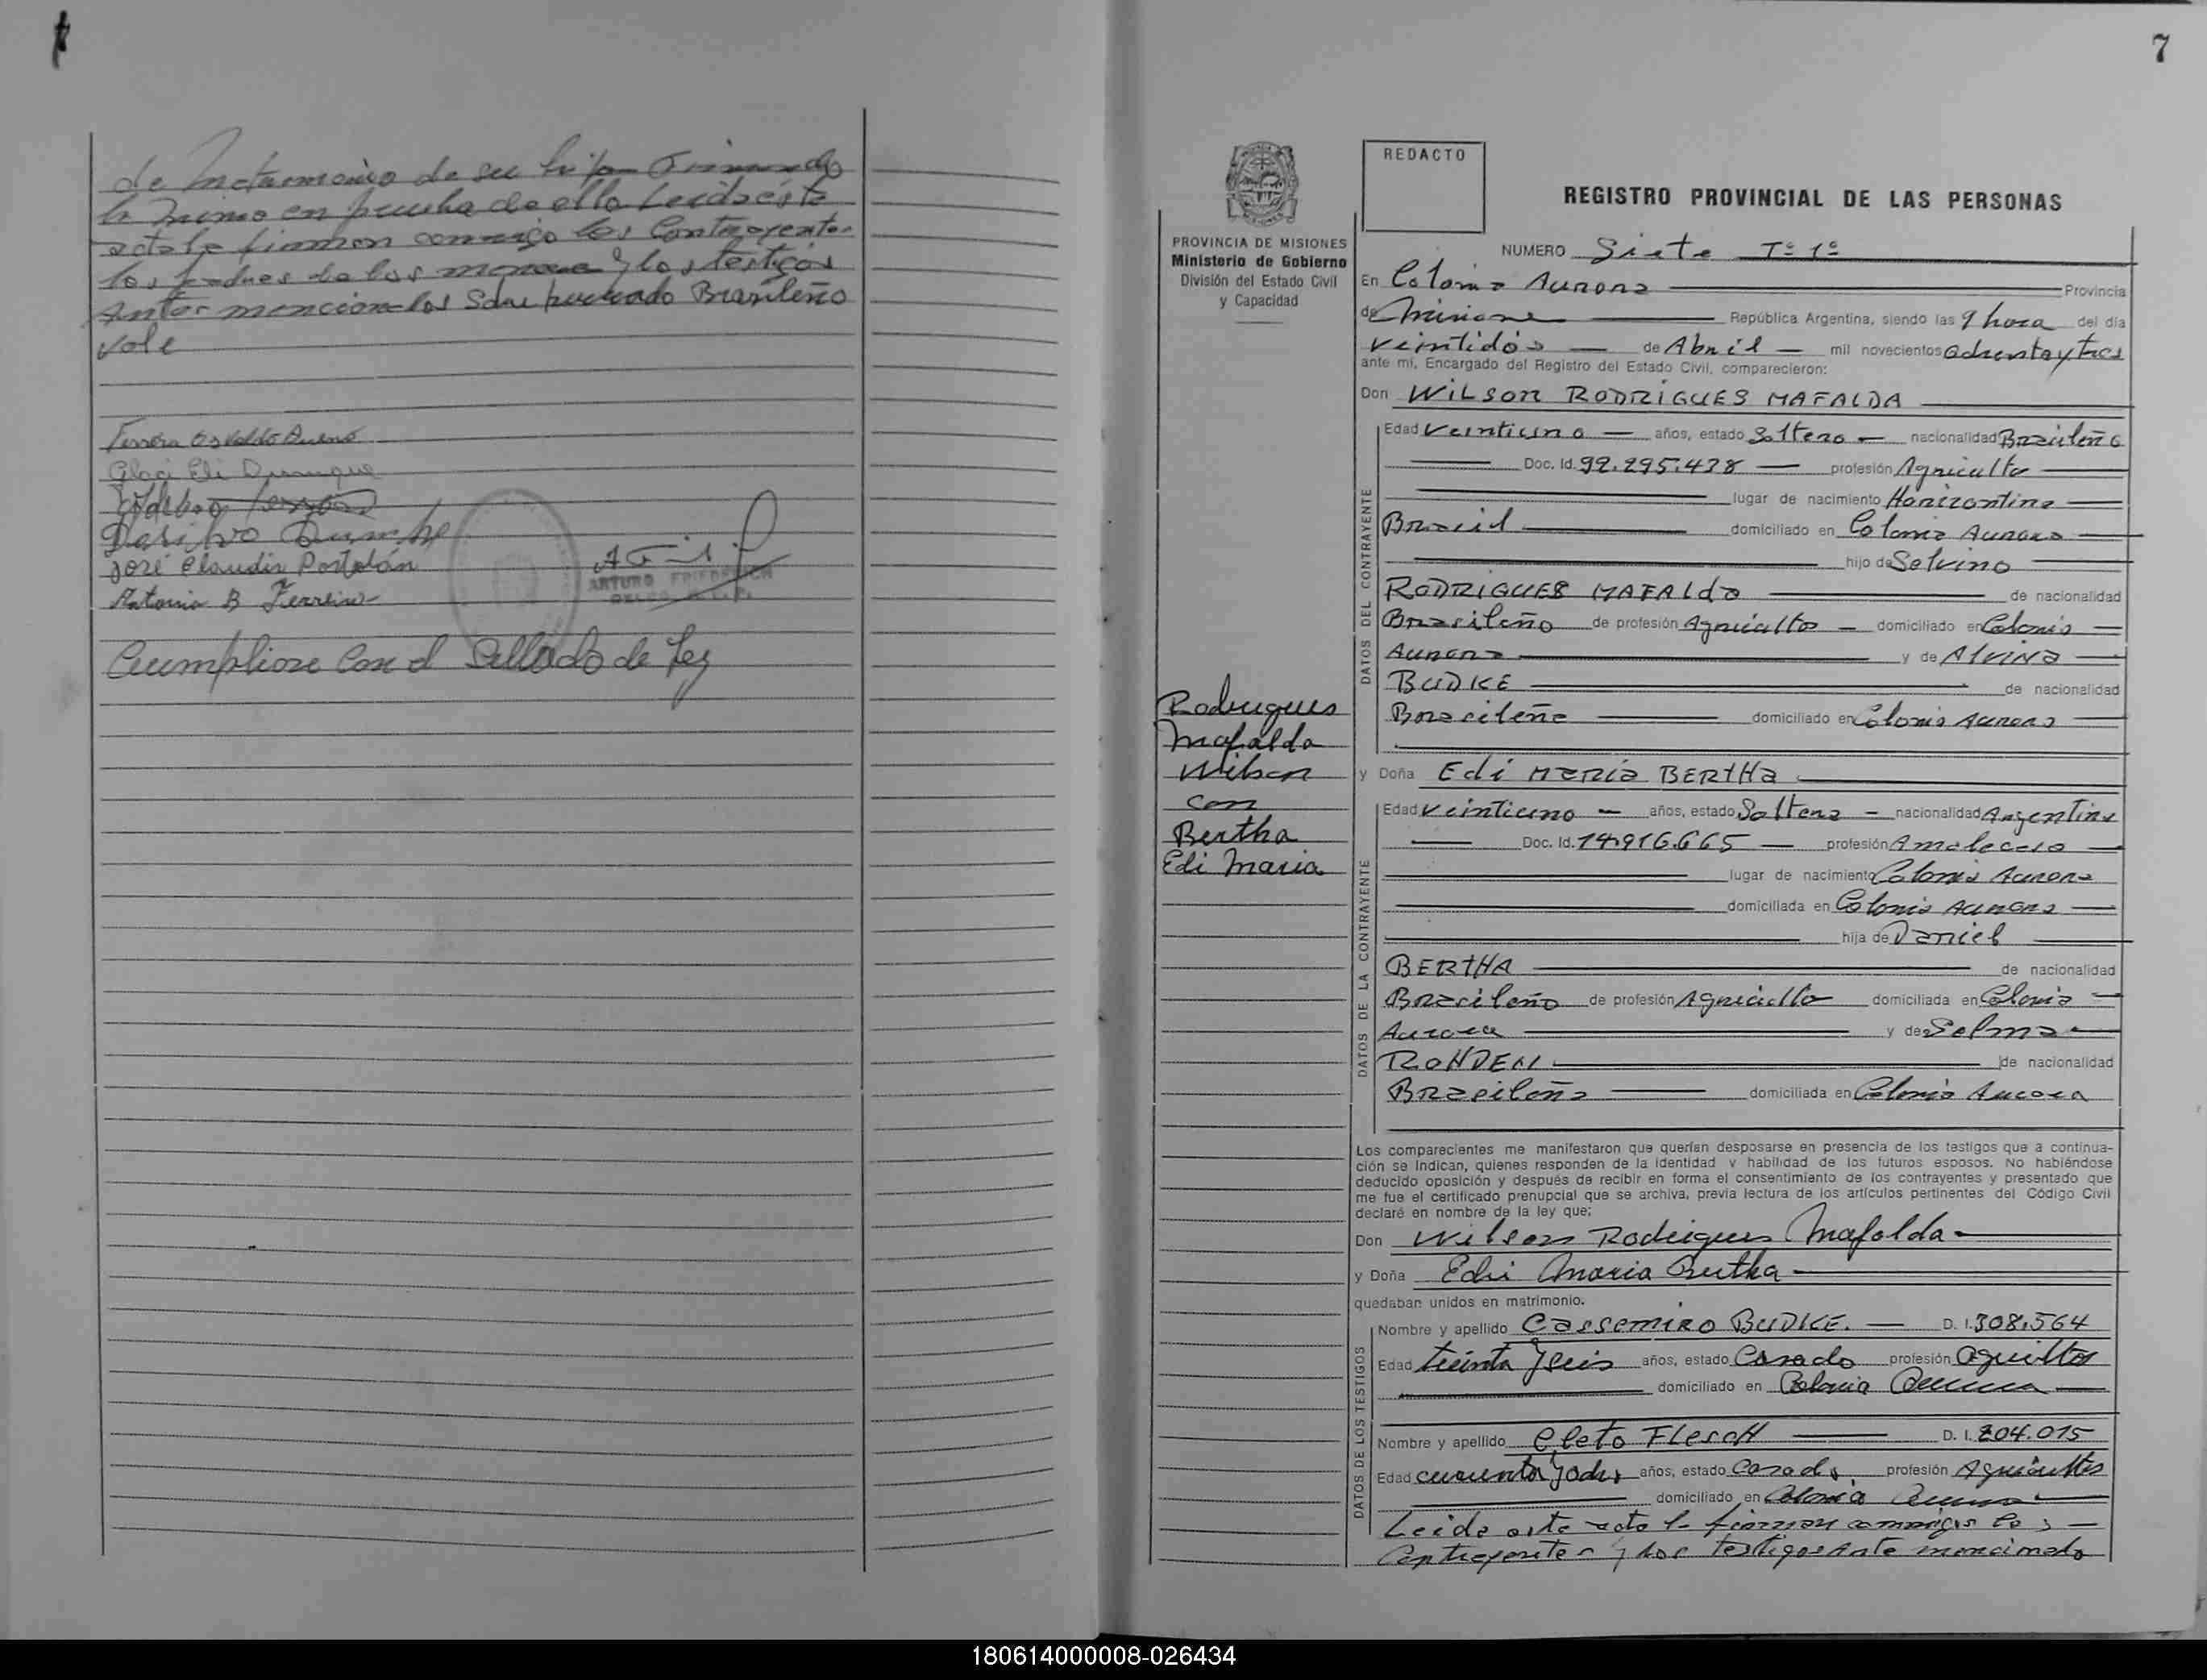 7
de matrimonio de su hijo Firmando
la misma en prueba de ello Leida esta
acta la firman conmigo los Contrayentes
los padres de los menores y los testigos
Antes mencionados Sobre puesto Brasileño
vale
Ferreira Osvaldo Bueno
José Claudir Portolán
Antonio B Ferreira
ARTURO FRIEDERICH
Cumpliose Con el Sellado de Ley
7
REDACTO
REGISTRO PROVINCIAL DE LAS PERSONAS
PROVINCIA DE MISIONES
Ministerio de Gobierno
División del Estado Civil
y Capacidad
NUMERO Siete Tº 1º
En Colonia Aurora Provincia
de Misiones República Argentina, siendo las 9 hora del día
veintidós de Abril mil novecientos ochenta y tres
ante mí, Encargado del Registro del Estado Civil, comparecieron:
Don WILSON RODRIGUES MAFALDA
Edad veintiuno años, estado Soltero nacionalidad Brasileño
Doc. Id. 92.295.438 profesión Agricultor
lugar de nacimiento Horizontina
Brasil domiciliado en Colonia Aurora
hijo de Selvino
RODRIGUES MAFALda de nacionalidad
Brasileño de profesión Agricultor domiciliado en Colonia
Aurora y de Alvina
BUDKE de nacionalidad
Brasileña domiciliado en Colonia Aurora
DATOS DEL CONTRAYENTE
Rodrigues
Mafalda
Wilson
con
Bertha
Edi Maria
y Doña Edi Maria BERTHa
Edad veintiuno años, estado Soltera nacionalidad Argentina
Doc. Id. 14.916.665 profesión Ama de casa
lugar de nacimiento Colonia Aurora
domiciliada en Colonia Aurora
hija de Daniel
BERTHA de nacionalidad
Brasileño de profesión Agricultor domiciliada en Colonia
Aurora y de Selma
ROHDEN de nacionalidad
Brasileña domiciliada en Colonia Aurora
DATOS DE LA CONTRAYENTE
Los comparecientes me manifestaron que querían desposarse en presencia de los testigos que a continua-
ción se indican, quienes responden de la identidad y habilidad de los futuros esposos. No habiéndose
deducido oposición y después de recibir en forma el consentimiento de los contrayentes y presentado que
me fue el certificado prenupcial que se archiva, previa lectura de los artículos pertinentes del Código Civil
declaré en nombre de la ley que:
Don Wilson Rodrigues Mafalda
y Doña Edi Maria Bertha
quedaban unidos en matrimonio.
Nombre y apellido Cassemiro BUDKE. D. I. 308.564
Edad treinta y seis años, estado Casado profesión Agricultor
domiciliado en Colonia Aurora
Nombre y apellido Cleto FLESCH D. I. 204.015
Edad cuarenta y ocho años, estado Casado profesión Agricultor
domiciliado en Colonia Aurora
DATOS DE LOS TESTIGOS
Leida esta acta la firman conmigo los
Contrayentes y los testigos Ante mencionado
180614000008-026434